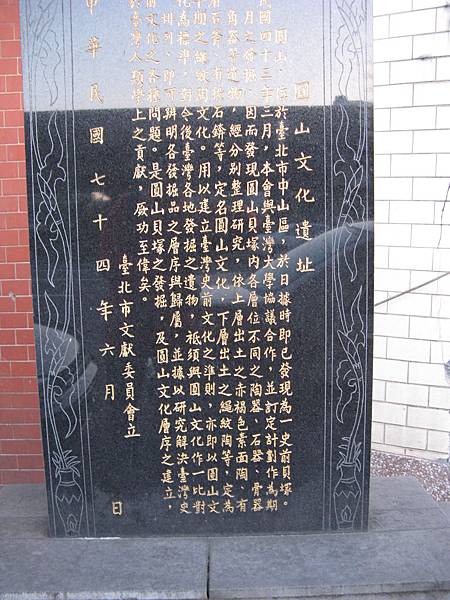 圓山文化遺址
圓山,位於臺北市中山區,於日據時即已發現為一史前貝塚。
民國四十三年三月,本會與臺灣大學協議合作,並訂定計劃作為期
月之發掘,因而發現圓山貝塚內各層位不同之陶器、石器、骨器
角器等遺物,經分別整理研究,依上層出土之赤褐色素面陶、有
石斧、有段石錛等,定名圓山文化,下層出土之繩紋陶等,定為
期之繩紋陶文化。用以建立臺灣史前文化之準則,亦即以圓山文
化為標準,對今後臺灣各地發掘之遺物,祗須與圓山文化作一比對
排列,即可辨明各發掘品之層序與歸屬,並據以研究解決臺灣史
前文化之各種問題。是圓山貝塚之發掘,及圓山文化層序之建立,
於臺灣人類學上之貢獻,厥功至偉矣。
臺北市文獻委員會立
中華民國七十四年六月 日